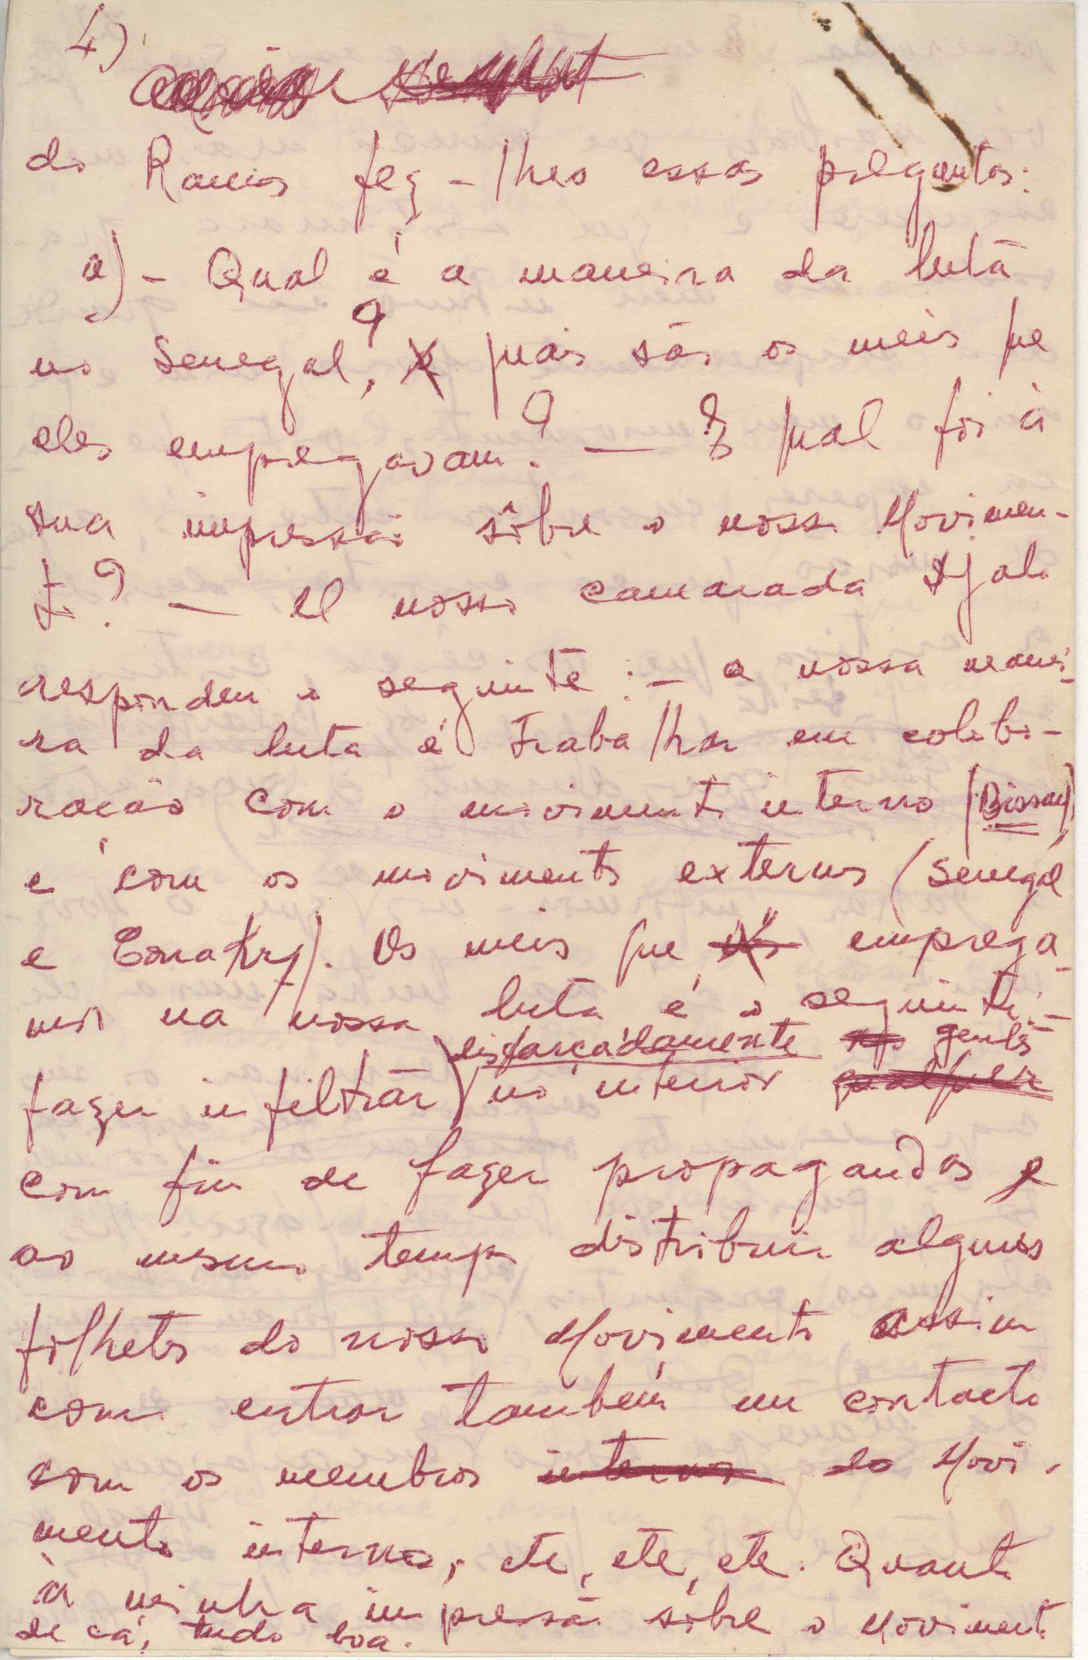 4)
do Ramos fez-lhes essas preguntas:
a) - Qual é a maneira da luta
no Senegal, ? quais são os meis que
eles empregavam? — E qual foi a
sua impressão sôbre o nosso Movimen-
to? — O nosso camarada Djalo
respondeu o seguinte: - a nossa manei-
ra da luta é trabalhar em colobo-
ração com o movimento interno (Bissau)
e com os movimentos externos (Senegal
e Conakry). Os meis que emprega-
mos na nossa luta é o seguinte:-
disfarçadamente gentes
fazer infiltrar no interior
com fim de fazer propagandas e
ao mesmo tempo distribuir algumes
folhetos do nosso Movimento assim
como entrar também em contacto
com os membros do Movi-
mento interno, etc, etc, etc. Quanto
à minha impressão sôbre o Movimento
de cá, tudo boa.